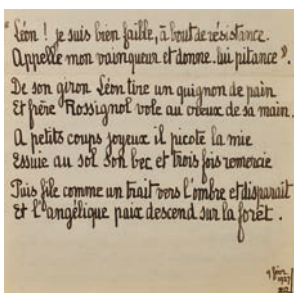 "Léon ! je suis bien faible, à bout de résistance.
Appelle mon vainqueur et donne-lui pitance".
De son giron Léon tire un quignon de pain
Et frère Rossignol vole au creux de sa main.
A petits coups joyeux il picote la mie
Essuie au sol son bec et trois fois remercie
Puis file comme un trait vers l'ombre et disparait
Et l'angélique paix descend sur la forêt.
9 févr
1927